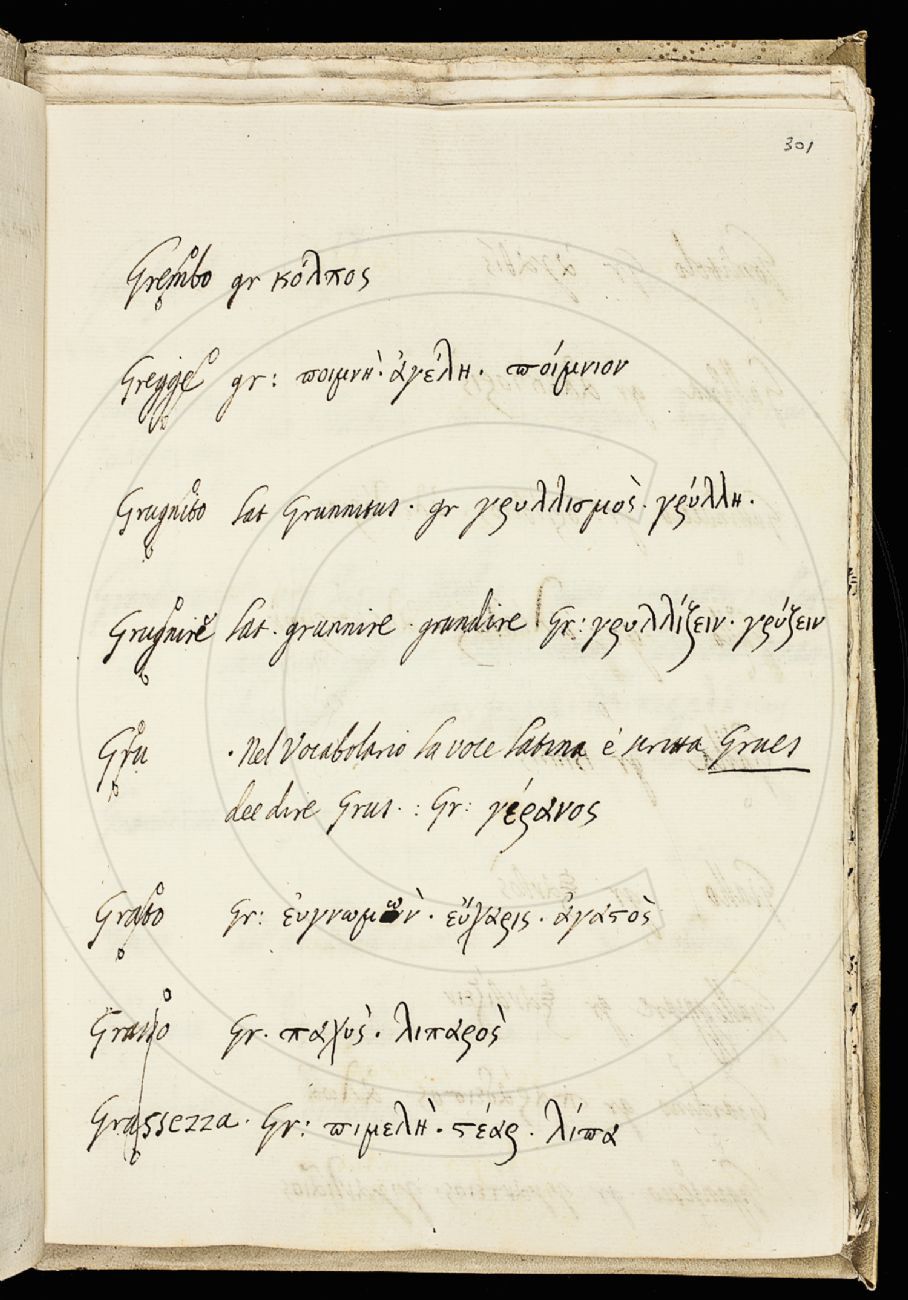 301
Grembo gr κόλπος
Gregge gr: ποιμνὴ· ἀγέλη· ποίμνιον
Grugnito lat Grunnitus· gr γρυλλισμὸς· γρύλλη·
Grugnire lat· grunnire· grundire Gr: γρυλλίζειν· γρύζειν
Gru · Nel Vocabolario la voce latina è scritta Grues
dee dire Grus· : Gr: γέρανος
Grato Gr: ἐυγνωμων· εὔχαρις· ἀγατὸς
Grasso Gr· παχὺς· λιπαρὸς
Grassezza· Gr: πιμελὴ· στέαρ· λίπα